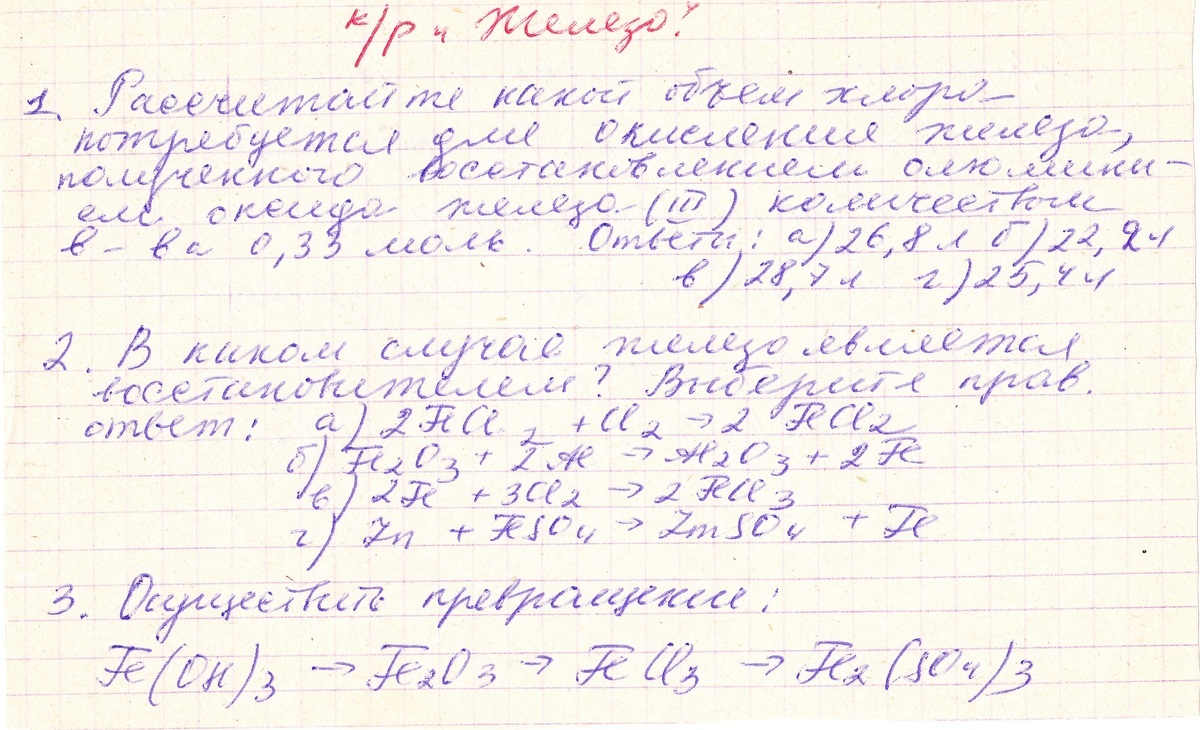 к/р „ Железо"
1. Рассчитайте какой объем хлора
потребуется для окисления железа,
полученного восстановлением алюмини-
ем оксида железа (III) количеством
в-ва 0,33 моль. Ответы: а) 26,8 л б) 22,2 л
в) 28,7 л г) 25,4 л
2. В каком случае железо является
восстановителем? Выберите прав.
ответ: а) 2FeCl2 + Cl2 → 2 FeCl2
б) Fe2O3 + 2Al → Al2O3 + 2Fe
в) 2Fe + 3Cl2 → 2FeCl3
г) Zn + FeSO4 → ZnSO4 + Fe
3. Осуществить превращение:
Fe(OH)3 → Fe2O3 → FeCl3 → Fe2(SO4)3